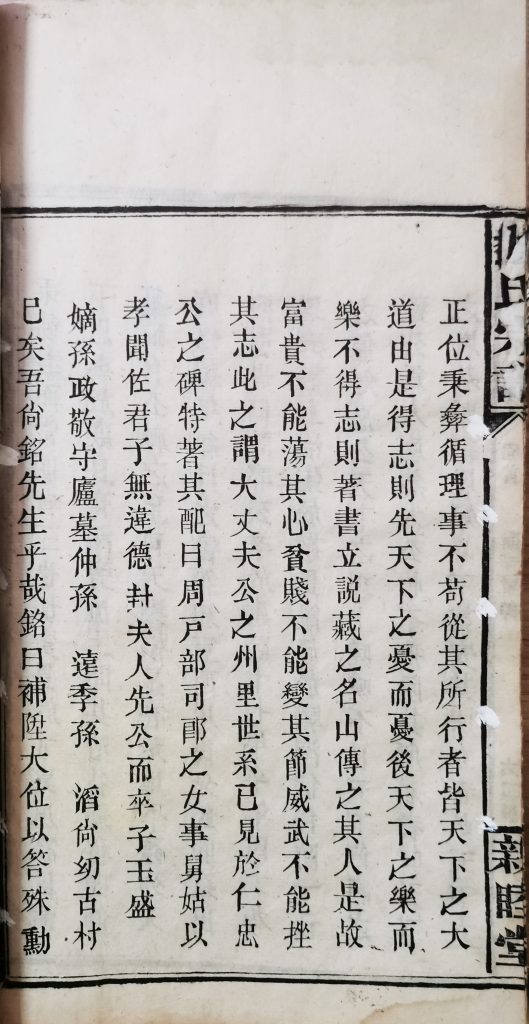 正位秉彝循理事不苟從其所行者皆天下之大
道由是得志則先天下之憂而憂後天下之樂而
樂不得志則著書立説藏之名山傳之其人是故
富貴不能蕩其心貧賤不能變其節威武不能挫
其志此之謂大丈夫公之州里世系已見於仁忠
公之碑特著其配曰周戸部司郎之女事舅姑以
孝聞佐君子無違德封夫人先公而卒子玉盛
嫡孫政敬守廬墓仲孫 逵季孫 滔尙幼古村
已矣吾尙銘先生乎哉銘曰補陞大位以答殊勳
氏
新睦堂